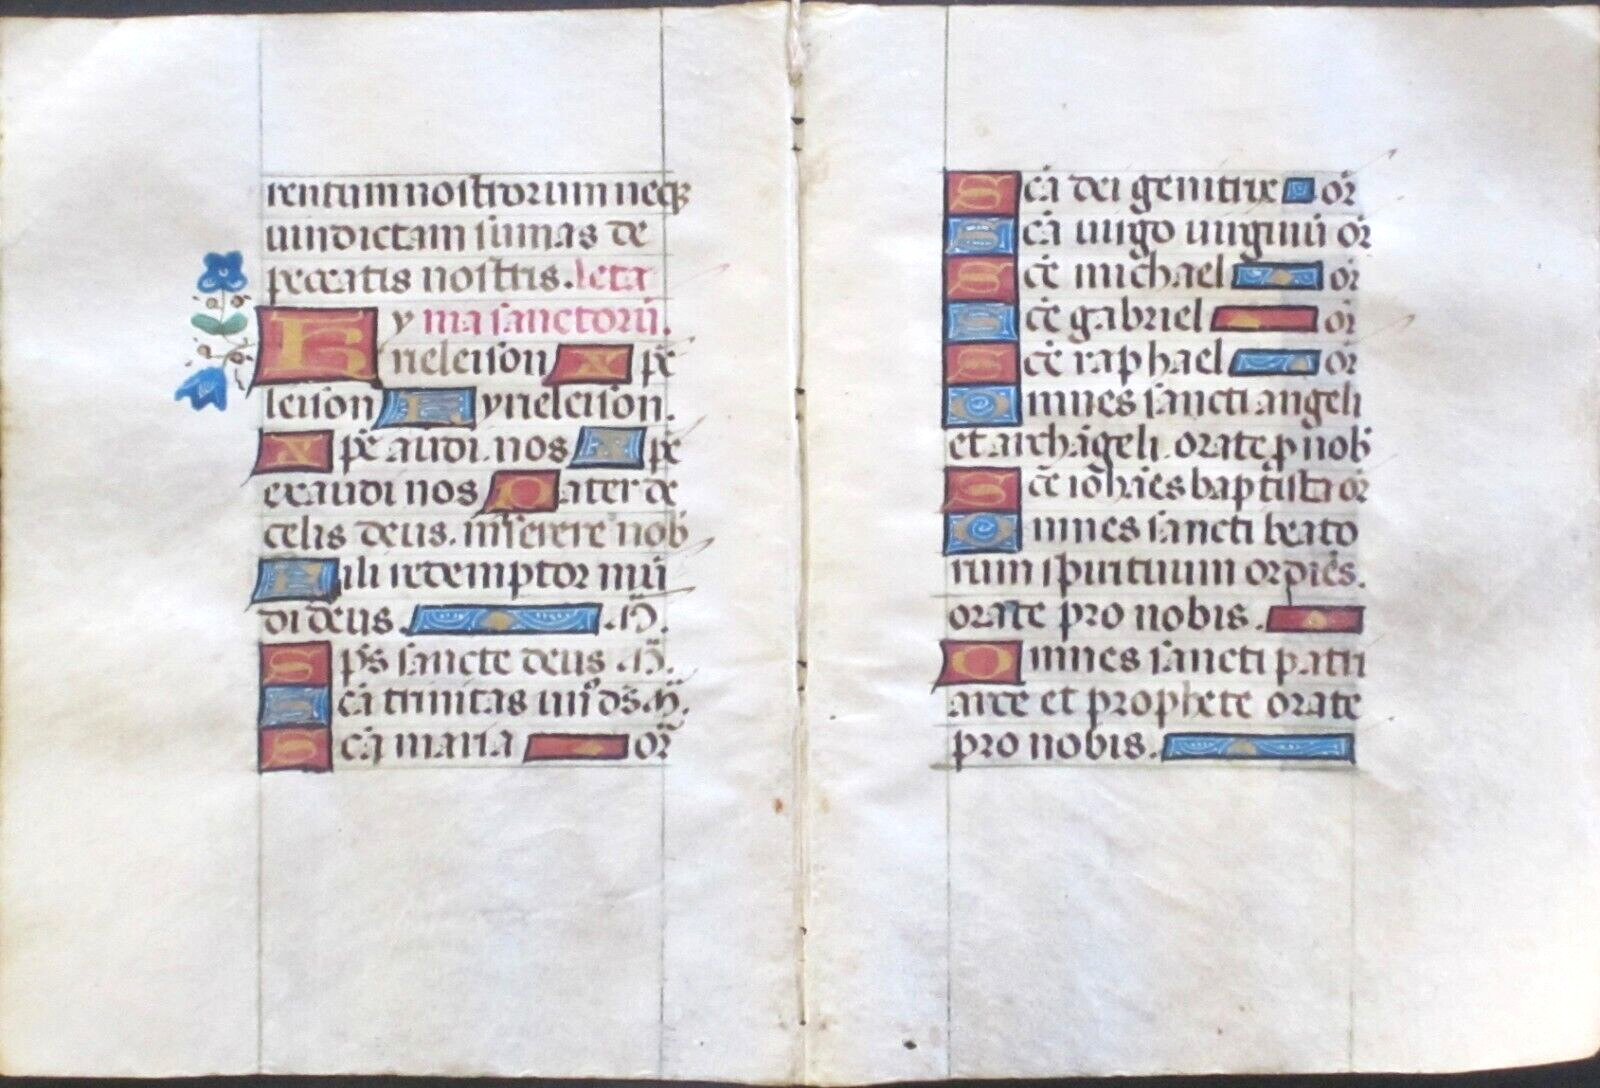 rentum nostrorum neq;
uindictam sumas de
peccatis nostris. leta
Ky nia sanctorū.
rieleison Xpē
leison Kyrieleison.
Xpē audi nos Xpē
exaudi nos Pater de
celis deus. miserere nob̄
Fili redemptor mū
di deus. M̄.
Sp̄s sancte deus M̄.
Sc̄a trinitas un⁹ ds̄ M̄.
Sc̄a maria or̄
Sc̄a dei genitrix or̄
Sc̄a uirgo uirginū or̄
Sc̄e michael or̄
Sc̄e gabriel or̄
Sc̄e raphael or̄
Omnes sancti angeli
et archāgeli orate p nob̄
Sc̄e ioh̄aes baptista or̄
Omnes sancti beato
rum spirituum ordies.
orate pro nobis.
Omnes sancti patri
arce et prophete orate
pro nobis.